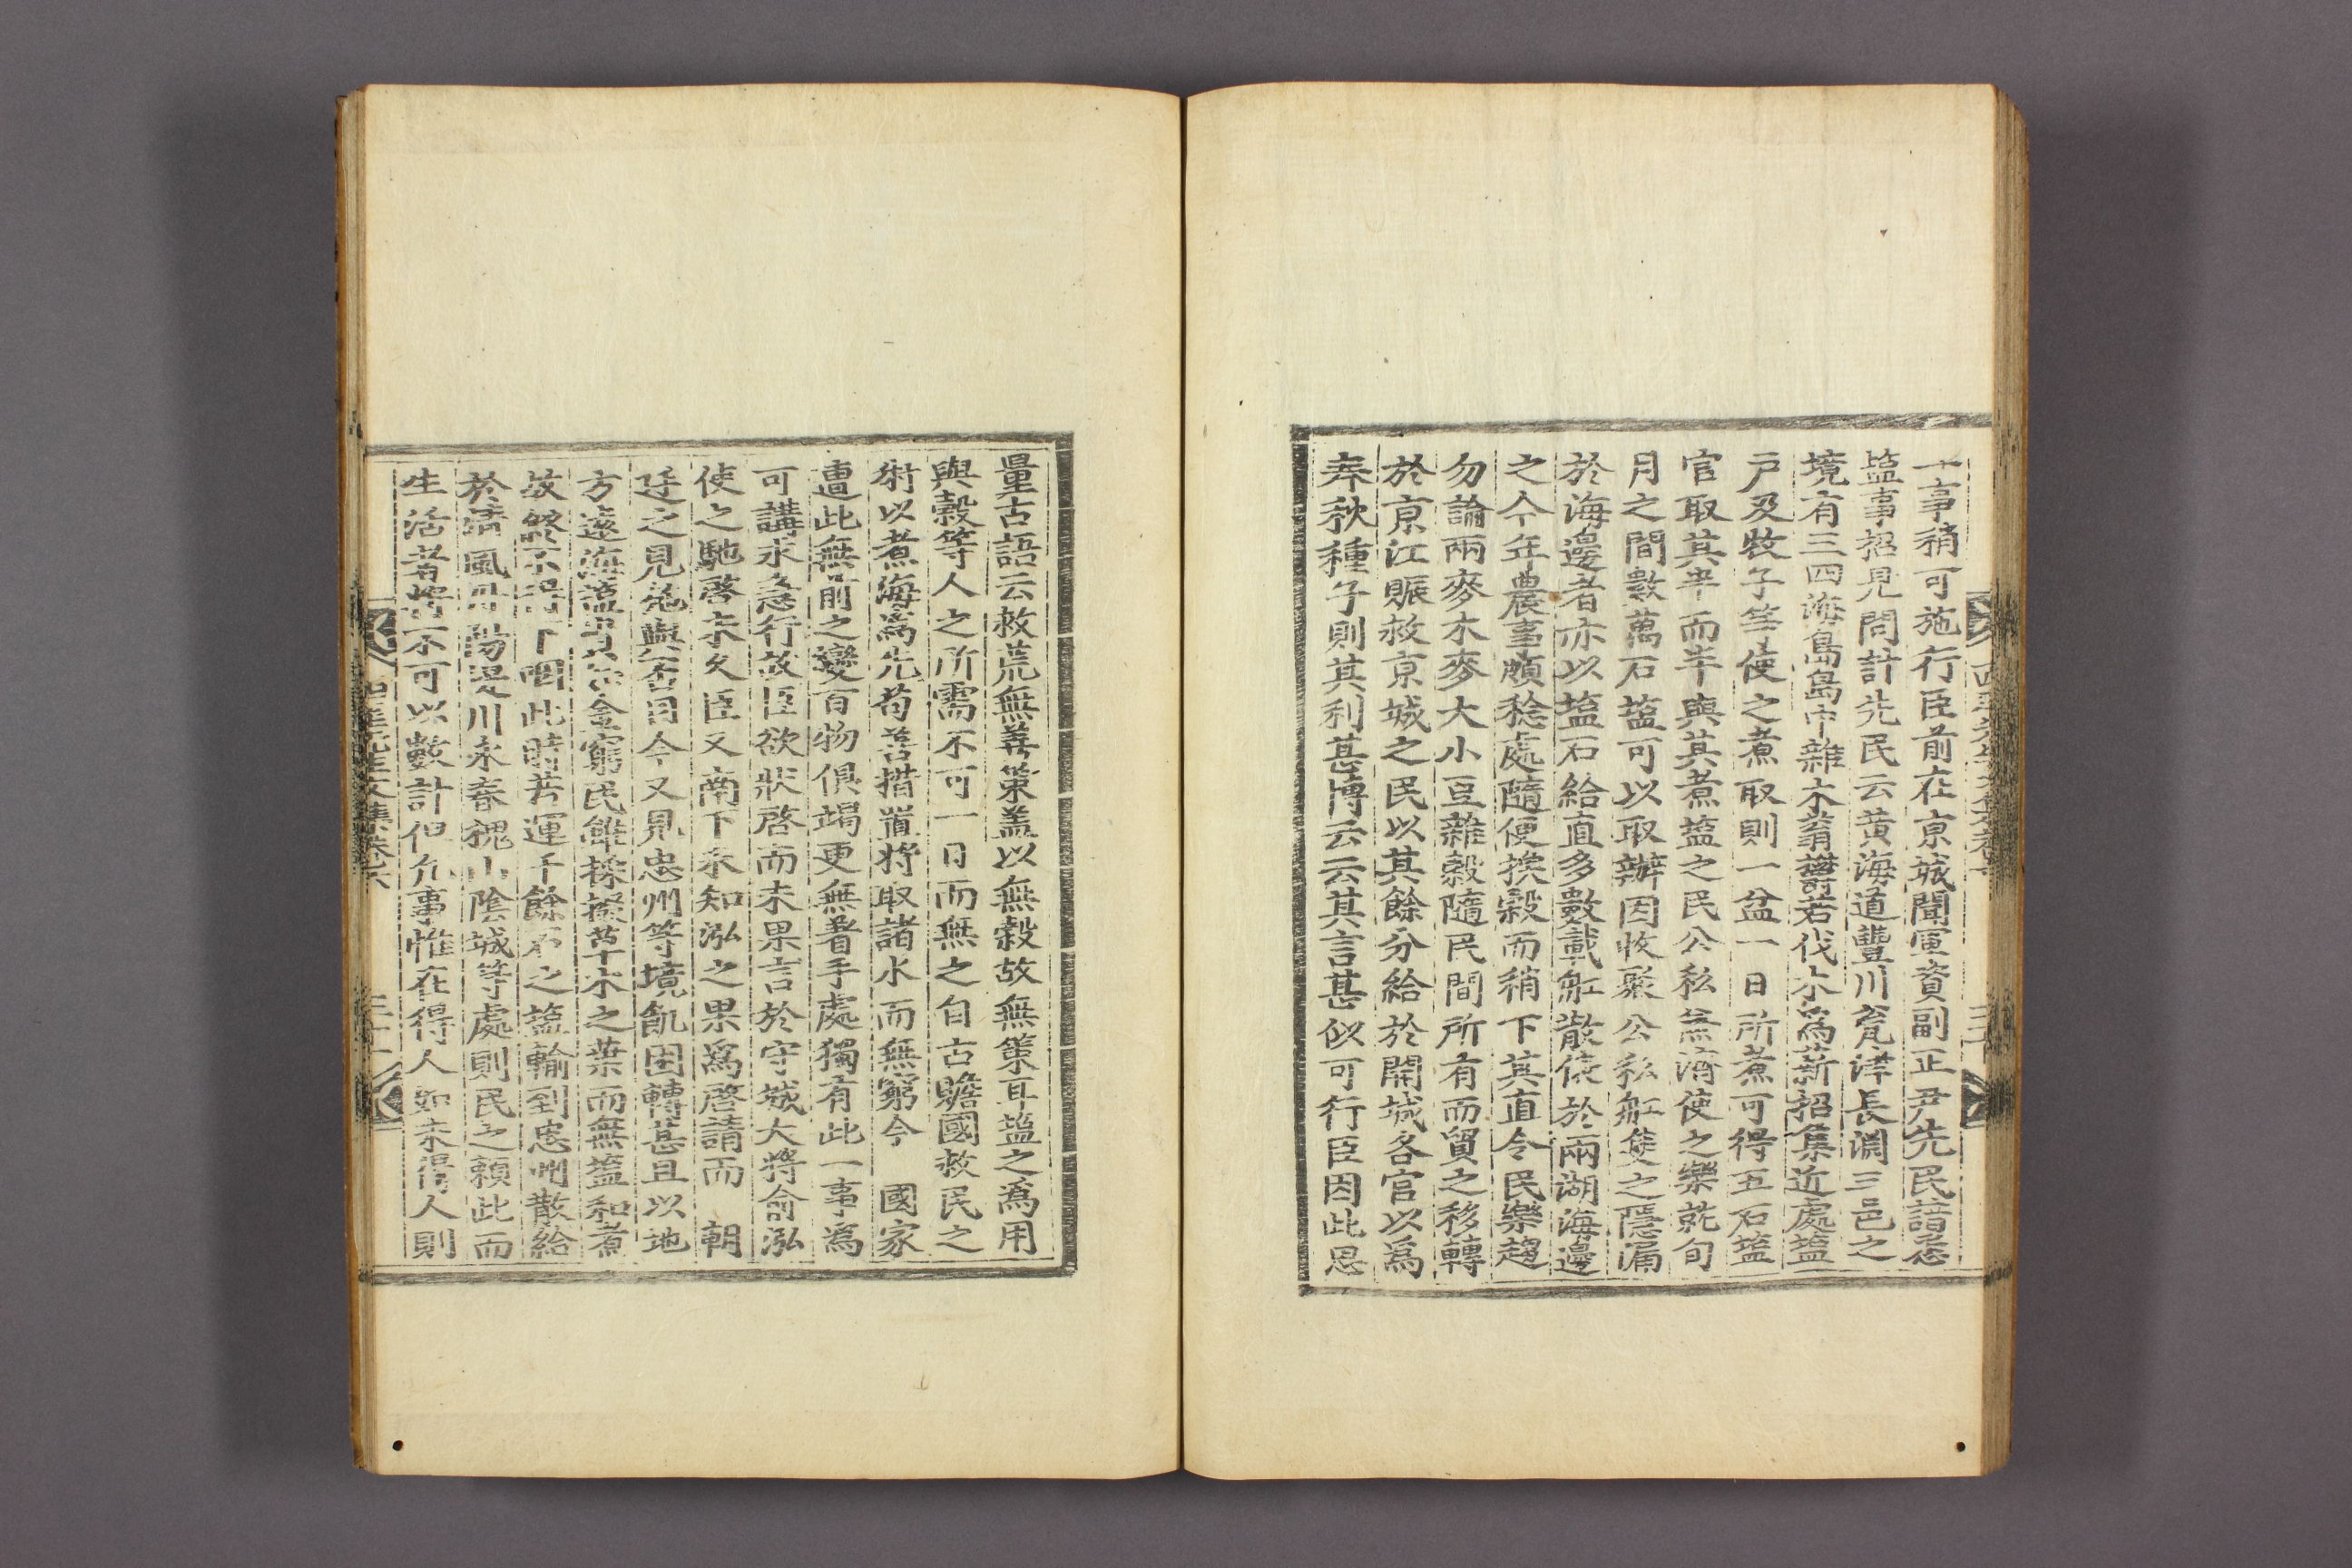 一事稍可施行臣前在京城聞軍資副正尹先民諳悉
塩事招見問計先民云黄海道豐川瓮津長淵三邑之
境有三四海島島中雜木蓊欝若伐木為薪招集近處塩
戶及牧子等使之煮取則一盆一日所煮可得五石塩
官取其半而半與其煮塩之民公私兼濟使之樂就旬
月之間數萬石塩可以取辦因收聚公私船隻之隱漏
於海邊者亦以塩石給直多數載船散依於兩湖海邊
之今年農事頗稔處隨便換穀而稍下其直令民樂趨
勿論兩麥木麥大小豆雜穀隨民間所有而貿之移轉
於京江賑救京城之民以其餘分給於開城各官以爲
春秋種子則其利甚博云云其言甚似可行臣因此思
量古語云救荒無善策盖以無穀故無策耳塩之爲用
與穀等人之所需不可一日而無之自古贍國救民之
術以煮海爲先苟善措置將取諸水而無窮今 國家
遭此無前之變百物俱竭更無着手處獨有此一事爲
可講求急行故臣欲狀啓而未果言於守城大將俞泓
使之馳啓未久臣又南下未知泓之果爲啓請而 朝
廷之見施與否目今又見忠州等境飢困轉甚且以地
方遠海塩貴如金窮民雖採掇草木之葉而無塩和煮
故終不得下咽此時若運千餘石之塩輸到忠州散給
於淸風丹陽堤川永春槐山陰城等處則民之賴此而
生活者將不可以數計但凡事惟在得人如未得人則